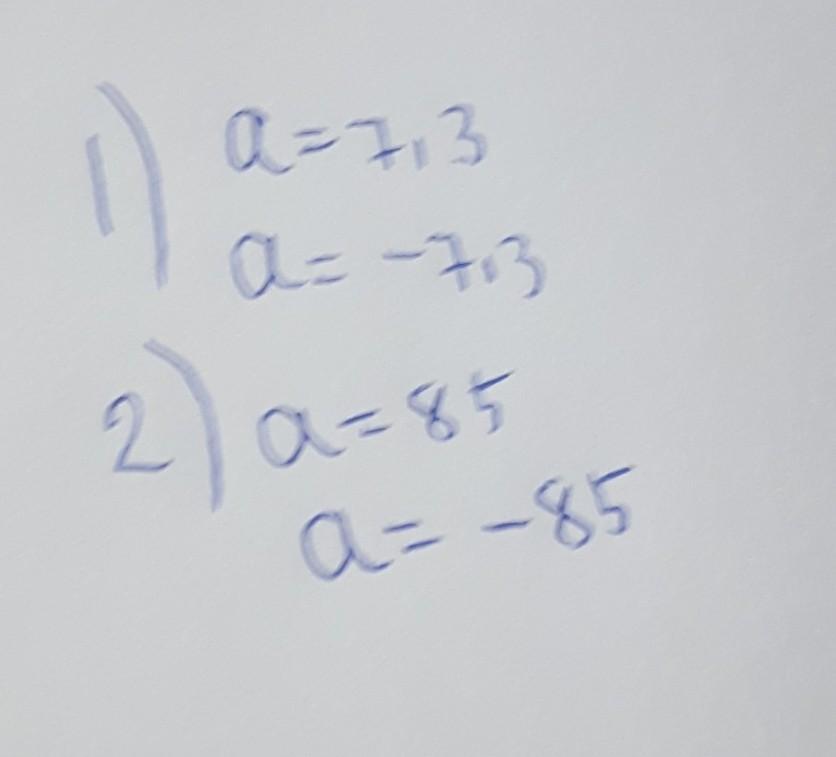 1) a=7,3
a=-7,3
2) a=85
a=-85